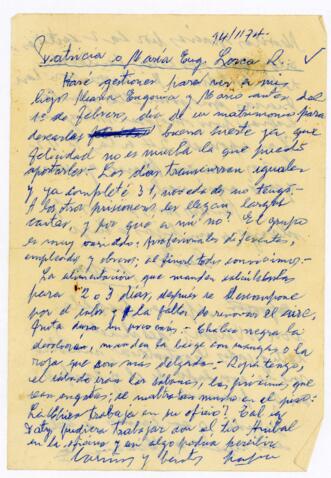 14/1/74
Patricia o María Eug. Lorca R.
Haré gestiones para ver a mis
hijos María Eugenia y Mario antes del
1º de Febrero, día de su matrimonio para
desearles buena suerte ya que
felicidad no es mucha la que puedo
aportarles.- Los días transcurren iguales
y ya completé 31, novedades no tengo.-
A los otros prisioneros les llegan largas
cartas, y por qué a mí no? El grupo
es muy variado; profesionales diferentes,
empleados y obreros, al final todos convivimos.-
La alimentación que manden calcularla
para 2 o 3 días, después se descompone
por el calor y la falta de renovar el aire,
fruta dura en pocas.- Chaleca negra la
devolveran, manden la beige con mangas o la
roja que son más delgadas.- Ropa tengo,
el sábado irán las sábanas, las próximas que
sean; se maltratan mucho en el piso.-
trabaja en su oficio? Tal vez
Paty pudiera trabajar con el tío Aníbal
en la oficina y en algo podría percibir.
Cariños y besos